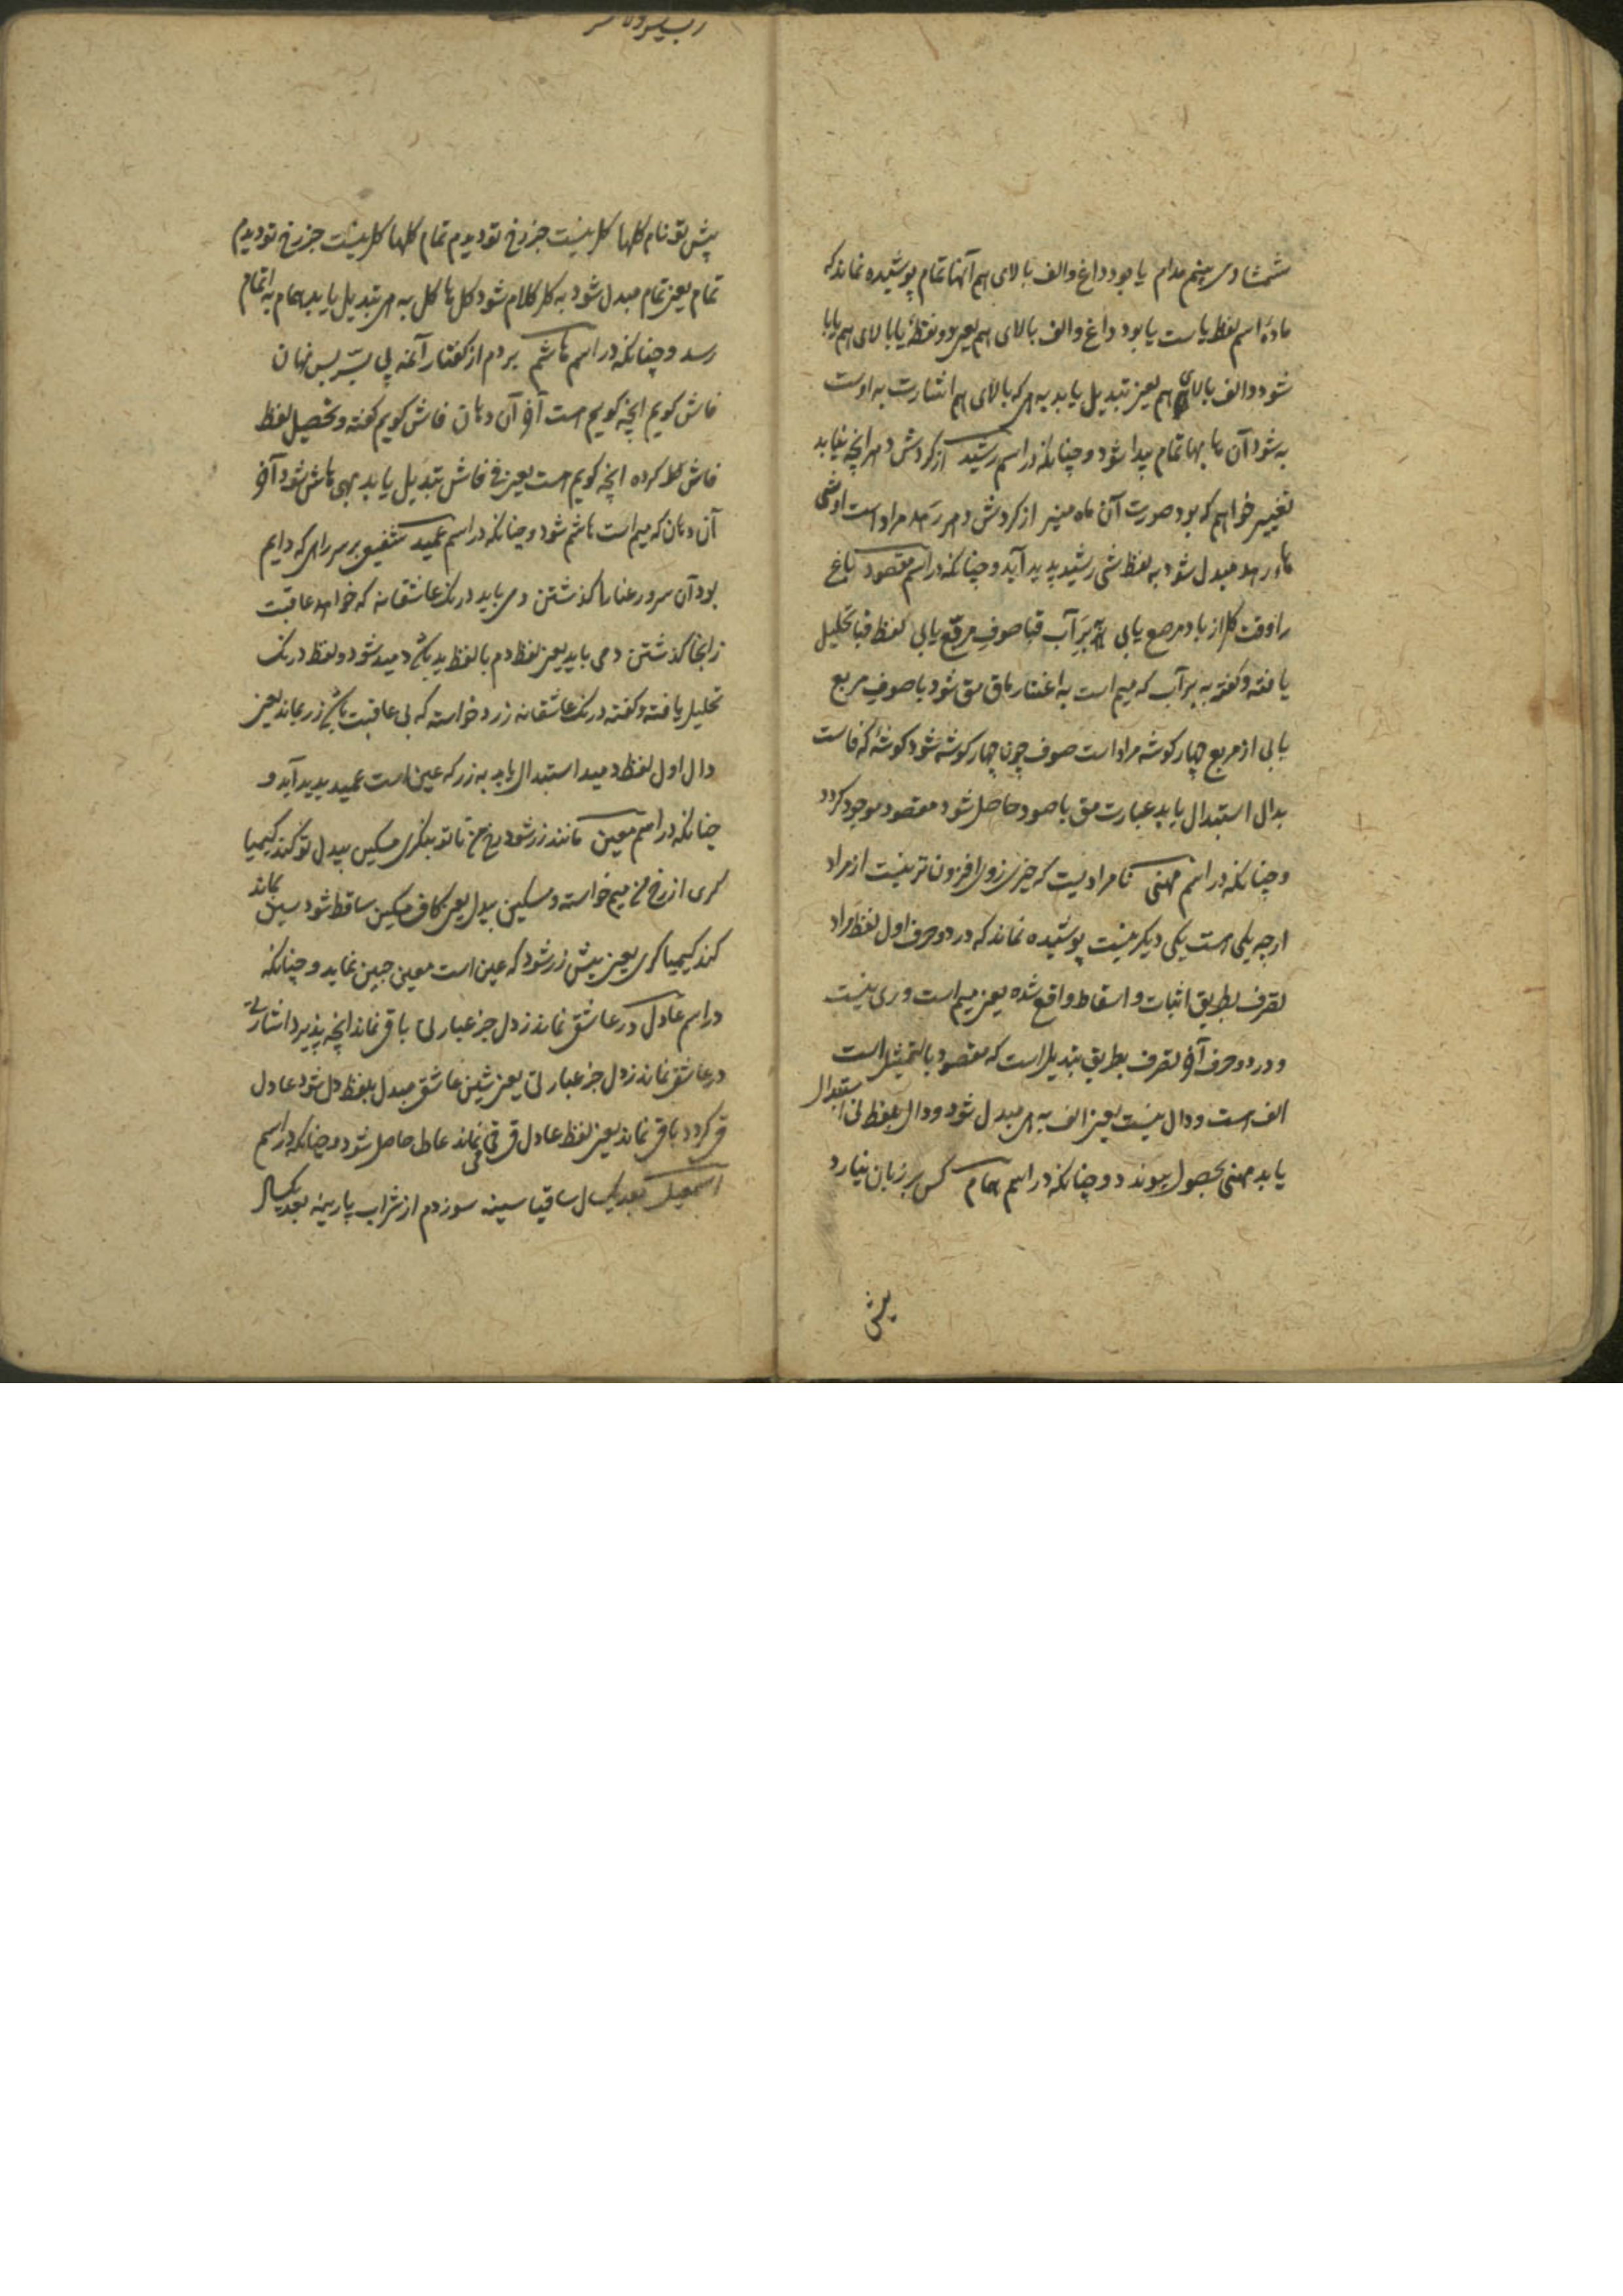 شمشاد می بینم مدام یا بود داغ و الف بالای هم آنها تمام پوشیده نماند که
مادهٔ اسم لفظ یاست یا بود داغ و الف بالای هم یعنی دو نقطهٔ یا بالای هم یا با
شود و الف بالای هم یعنی تبدیل یابد به هی که بالای هم اشارت به اوست
به شود آن ها بها تمام پیدا شود و چنانکه در اسم رشید از کردش دهر انچه نیاید
تغییر خواهم که بود صورت آن ماه منیر از کردش دهر رهد مراد است
رهد مبدل شود به لفظ شی رشید پدید آید و چنانکه در اسم مقصود باغ
را وقت کل از باد مرصع یابی بر آب قبا صوف مربع یابی لفظ قبا تحلیل
یافته و کفته به بر آب که میم است به اعتبار ما ق مق شود با صوف مربع
یابی از مربع چهار کوشه مراد است صوف چون چهار کوشه شود کوشهٔ که فاست
بدال استبدال یابد عبارت مق با صود حاصل شود مقصود موجود کردد
و چنانکه در اسم مهنی نامرادیست که چیزی زوی افزون تر نیست از مراد
ارچه یکی است یکی دیکر نیست پوشیده نماند که در دو حرف اول لفظ مراد
تصرف بطریق اثبات و اسقاط واقع شده یعنی میم است و ری نیست
و در دو حرف آخر تصرف بطریق تبدیل است که مقصود بالتمثیل است
الف است و دال نیست یعنی الف به هی مبدل شود و دال بلفظ نی استبدال
یابد مهنی بحصول پیوندد و چنانکه در اسم همام کس بر زبان نیارد
پیش
پیش تو نام کلها کل نیست جز رخ تو دیدم تمام کلها کل نیست جز رخ تو دیدم
تمام یعنی تمام مبدل شود به کل کلام شود کل ها کل به هی تبدیل یابد همام به اتمام
رسد و چنانکه در اسم هاشم بردم از کفتار آغه پی بسر بس نهان
فاش کویم انچه کویم هست آخر آن دهان فاش کویم کفته و تحصیل لفظ
فاش کل کرده انچه کویم هست یعنی فی فاش تبدیل یابد بهی هاش شود آخر
آن دهان که میم است هاشم شود و چنانکه در اسم عمید شفیق بر سر راهی که دایم
بود آن سرو رعنا را کذشتن دمی باید درنک عاشقانه که خواهد عاقبت
زانجا کذشتن دمی باید یعنی لفظ دم با لفظ ید باشد دمید شود و لفظ درنک
تحلیل یافته و کفته درنک عاشقانه زرد خواسته که بی عاقبت باشد زر بماند یعنی
دال اول لفظ دمید استبدال یابد به زر که عین است عمید پدید آید و
چنانکه در اسم معین مانند زر شود رخ من تا تو بنکری مسکین بیدل تو کند کیمیا
کری از رخ من میم خواسته و مسکین بیدل یعنی کاف مسکین ساقط شود سین بماند
کند کیمیا کری یعنی سینش زر شود که عین است معین جبین نماید و چنانکه
در اسم عادل در عاشق نماند ز دل جز عبارتی باقی نماند انچه پذیرد اشارتی
در عاشق نماند ز دل جز عبارتی یعنی شین عاشق مبدل بلفظ دل شود عادل
ق کردد باقی نماند یعنی لفظ عادل ق قی نماند عادل حاصل شود و چنانکه در اسم
اسمعیل بعد یکسال ساقیا سینه سوزدم از شراب پارینه بعد یکسال